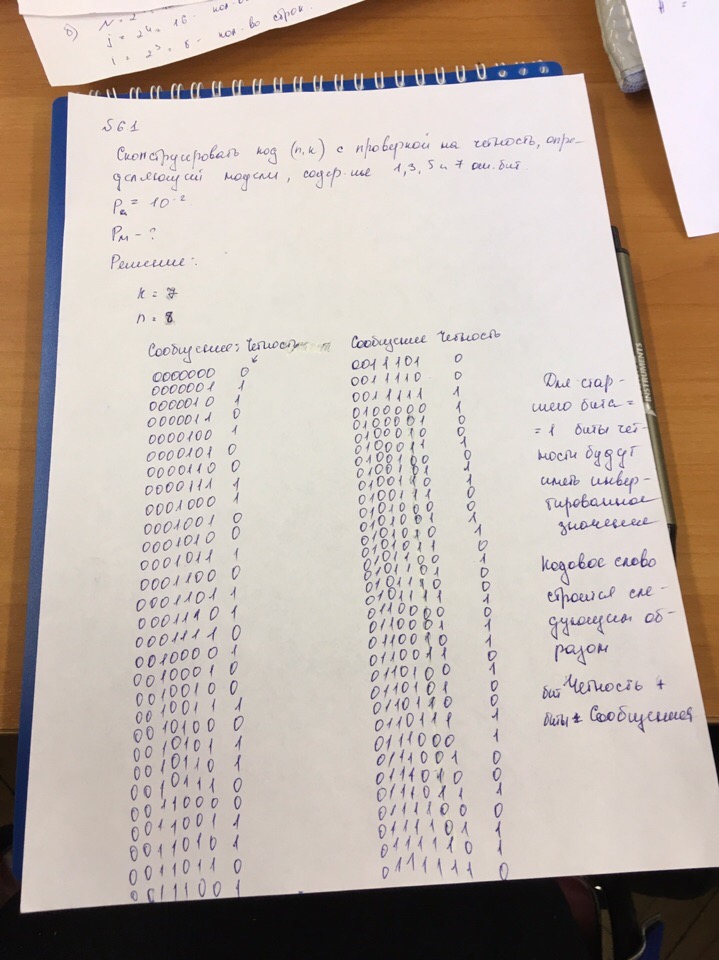 б)
j = 2⁴ = 16 -
i = 2³ = 8 - кол-во строк.
№6.1
Сконструировать код (n,k) с проверкой на четность, опре-
деляющий модели, содер-ие 1,3,5 и 7 ош. бит.
= 10⁻²
Pм - ?
Решение:
k = 7
n = 8
Сообщение: Четность
0000000 0
0000001 1
0000010 1
0000011 0
0000100 1
0000101 0
0000110 0
0000111 1
0001000 1
0001001 0
0001010 0
0001011 1
0001100 0
0001101 1
0001110 1
0001111 0
0010000 1
0010001 0
0010010 0
0010011 1
0010100 0
0010101 1
0010110 1
0010111 0
0011000 0
0011001 1
0011010 1
0011011 0
0011100 1
Сообщение Четность
0011101 0
0011110 0
0011111 1
0100000 1
0100001 0
0100010 0
0100011 1
0100100 0
0100101 1
0100110 1
0100111 0
0101000 0
0101001 1
0101010 1
0101011 0
0101100 1
0101101 0
0101110 0
0101111 1
0110000 0
0110010 1
0110011 0
0110100 1
0110101 0
0110110 0
0110111 1
0111000 1
0111001 0
0111010 0
0111011 1
0111100 0
0111101 1
0111110 1
0111111 0
Для стар-
шего бита =
= 1 биты чет-
ности будут
иметь инвер-
тированное
значение
Кодовое слово
строится сле-
дующим об-
разом
бит Четность +
биты Сообщения
INSTRUMENTS